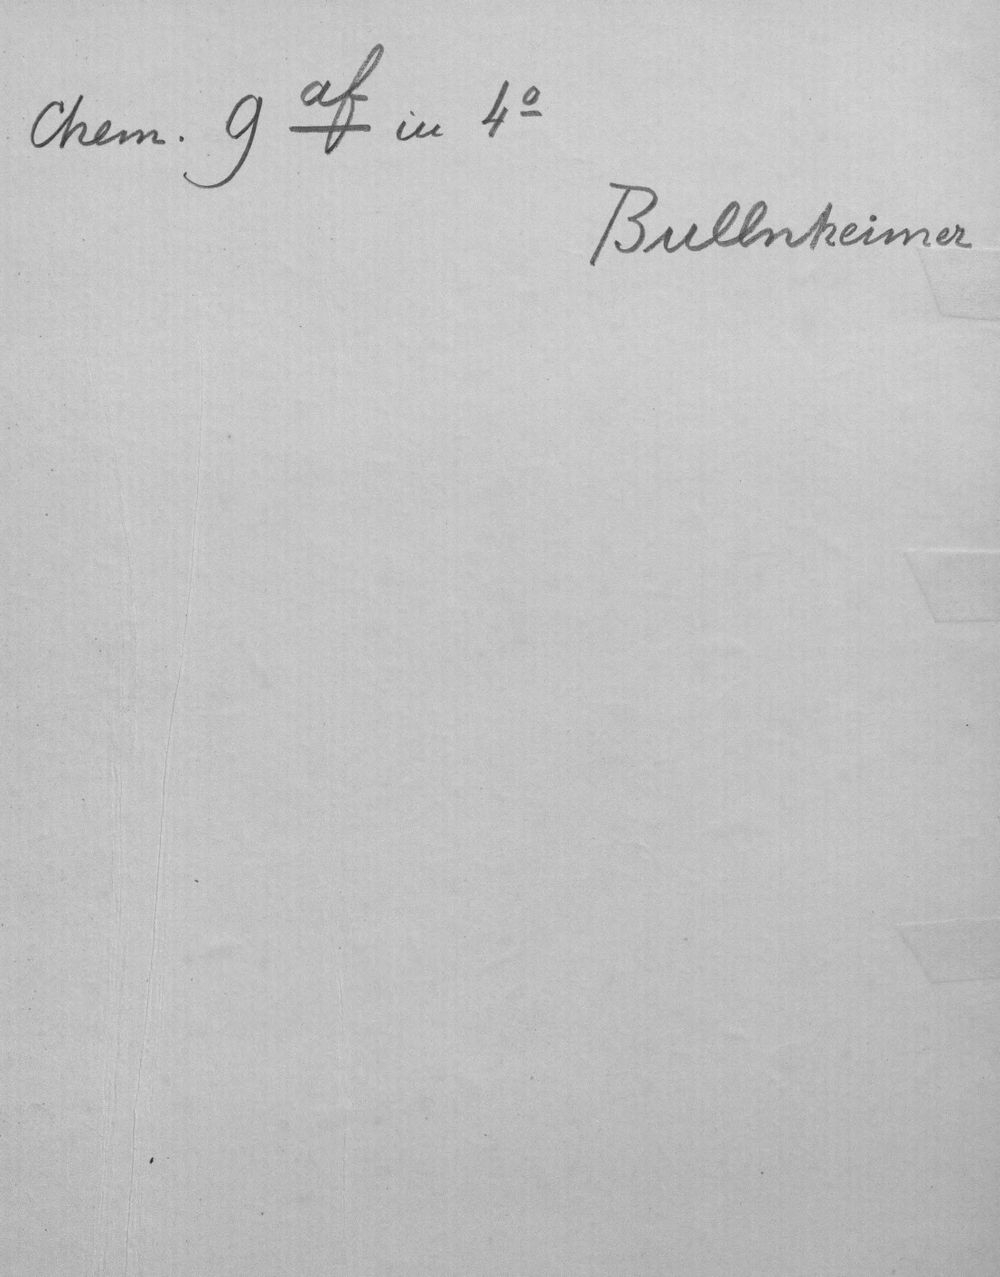 Chem. 9 af in 4º
Bullnheimer